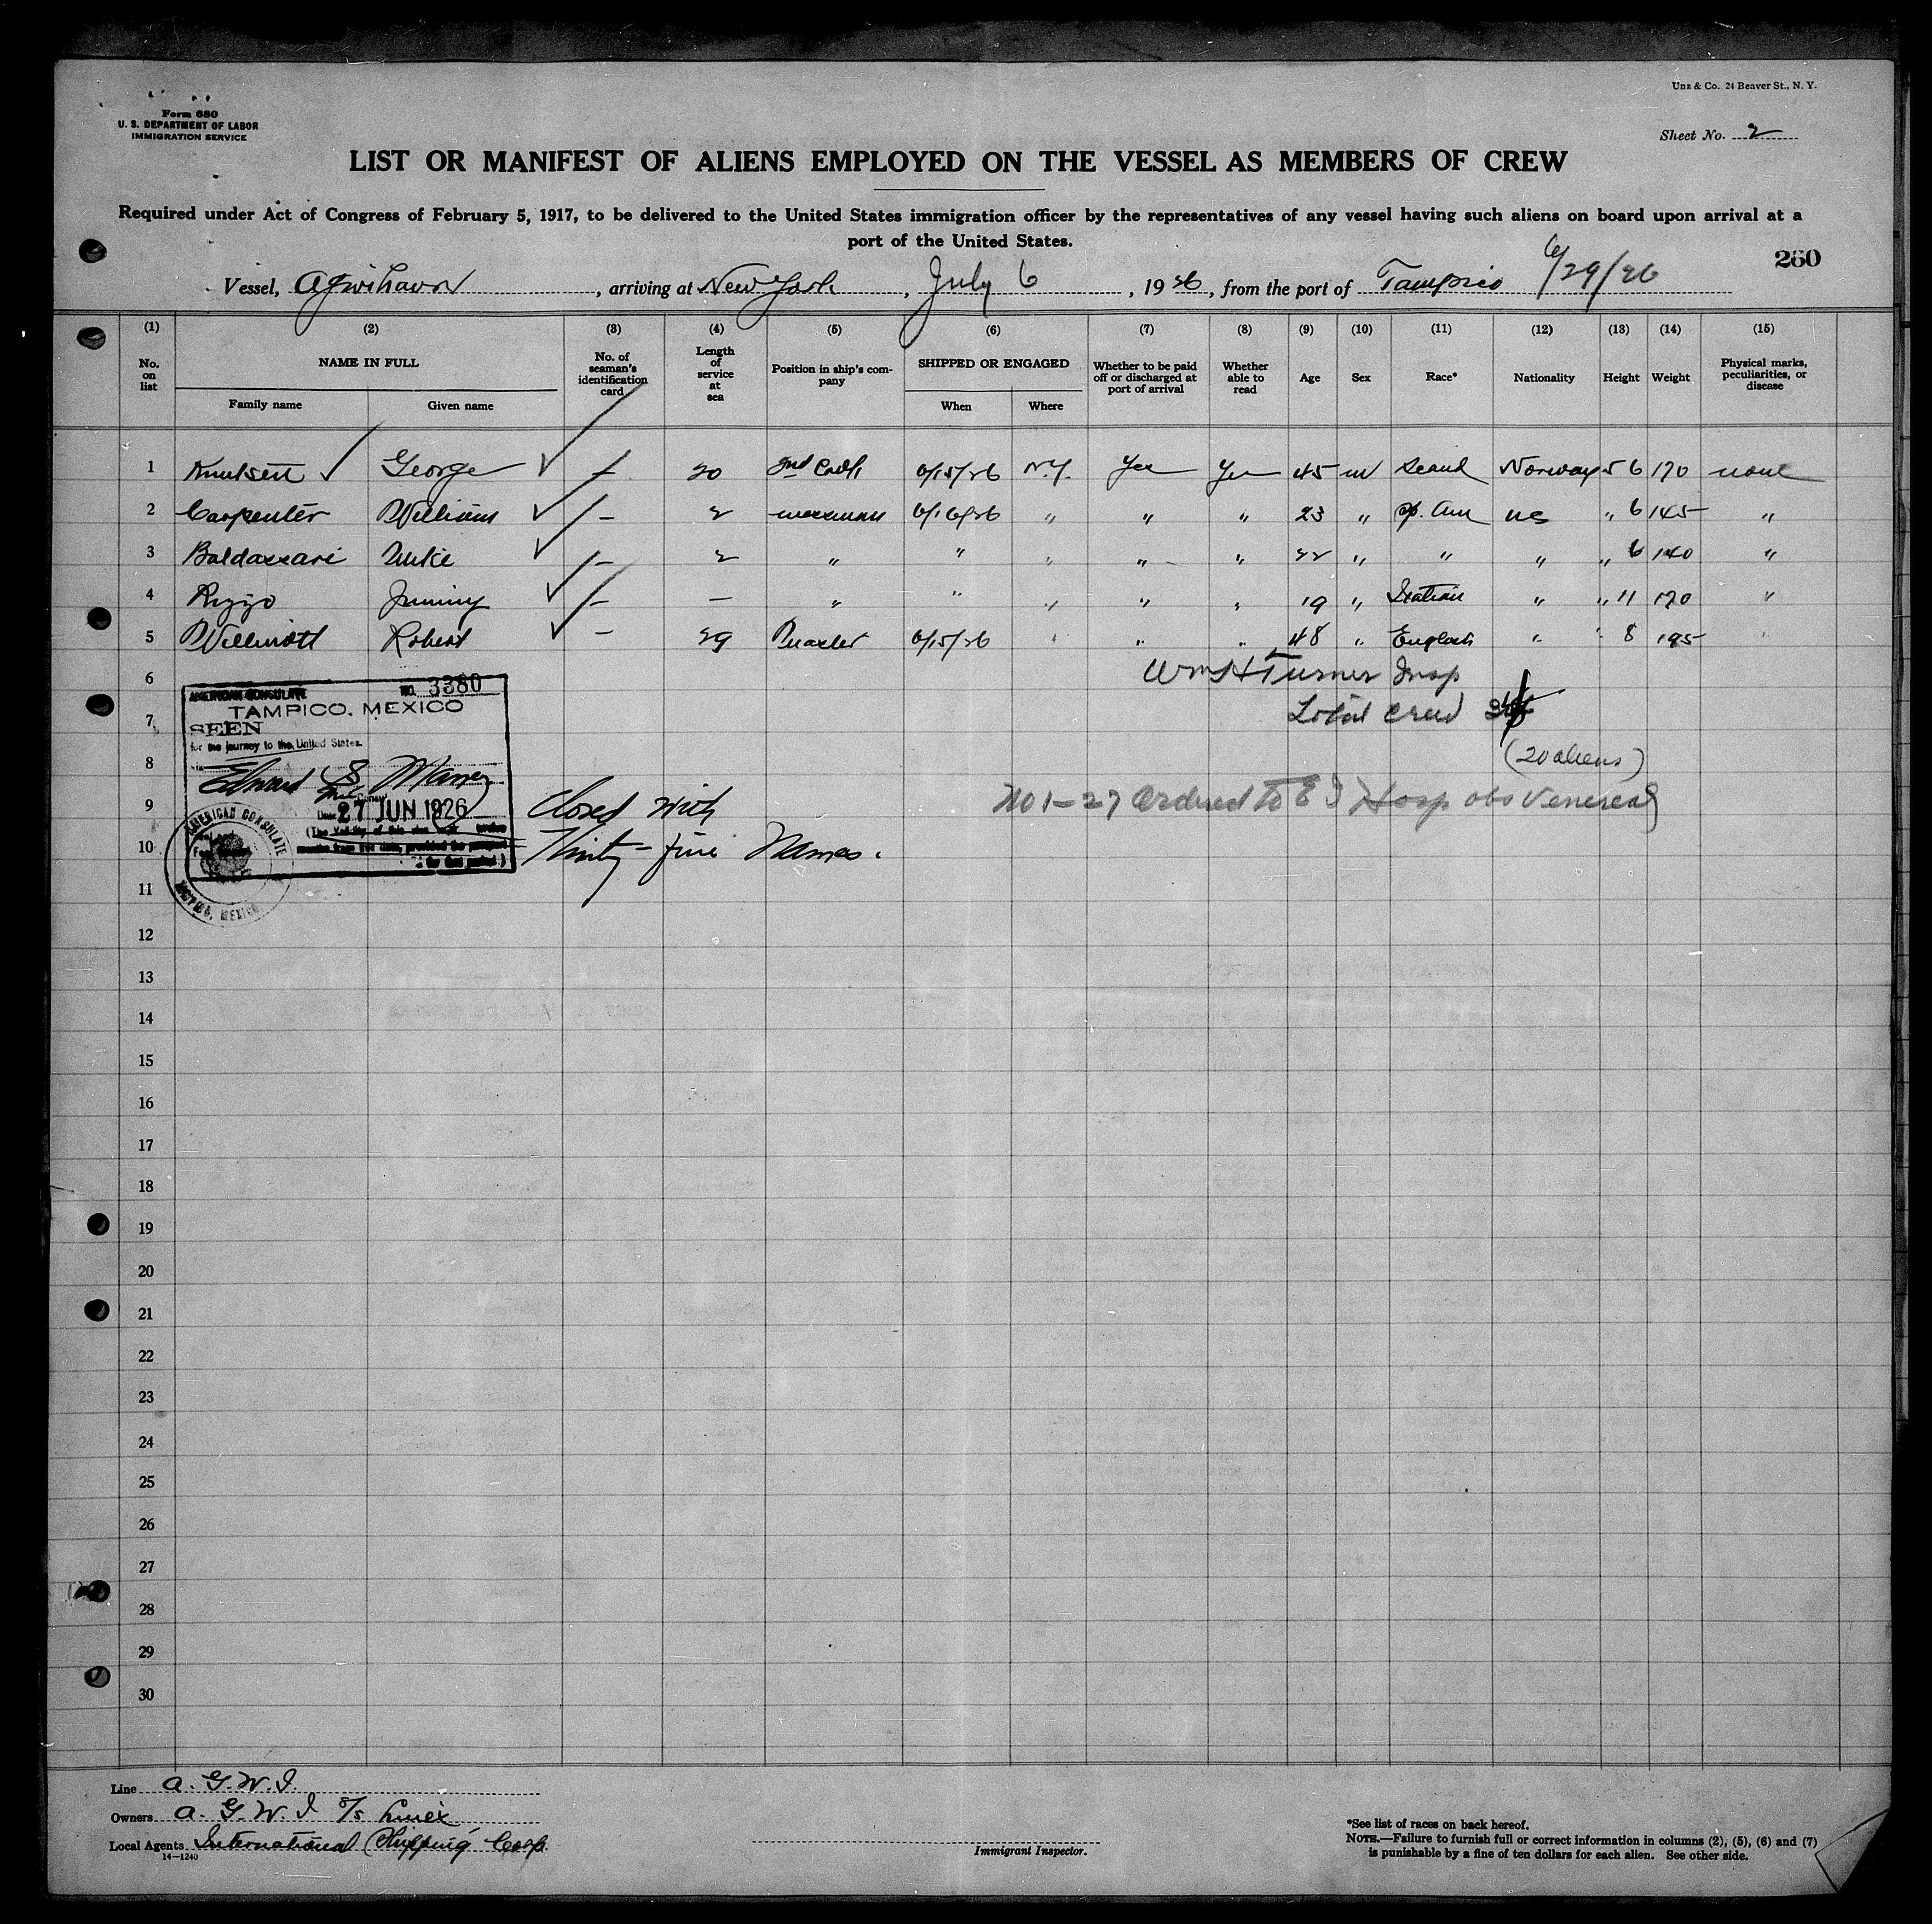 Form 680
U. S. DEPARTMENT OF LABOR
IMMIGRATION SERVICE
Unz & Co. 24 Beaver St., N. Y.
Sheet No. 2
LIST OR MANIFEST OF ALIENS EMPLOYED ON THE VESSEL AS MEMBERS OF CREW
Required under Act of Congress of February 5, 1917, to be delivered to the United States immigration officer by the representatives of any vessel having such aliens on board upon arrival at a
port of the United States.
260
Vessel, Agwihavre, arriving at New York, July 6, 1926, from the port of Tampico 6/29/26
(1) (2) (3) (4) (5) (6) (7) (8) (9) (10) (11) (12) (13) (14) (15)
No. on list
NAME IN FULL
Family name
Given name
No. of seaman's identification card
Length of service at sea
Position in ship's company
SHIPPED OR ENGAGED
When
Where
Whether to be paid off or discharged at port of arrival
Whether able to read
Age
Sex
Race*
Nationality
Height
Weight
Physical marks, peculiarities, or disease
1 George – 20 2nd Cook 6/15/26 N.Y. Yes Yes 45 m Scand Norway 5 6 170 none
2 Carpenter William – 2 messman 6/16/26 " " " 23 " " 6 145 "
3 Baldazzari Mike – 2 " " " " " 22 " " " " 6 140 "
4 Rizzo Jimmy – – " " " " " 19 " Italian " " 11 170 "
5 Willmott Robert – 29 Master 6/15/26 " " " 48 " English " " 8 195 "
6
Wm H Turner Insp
7
Total crew
8
(20 aliens)
9
No 1-27 Ordered to E I Hosp obs Venereal
10
AMERICAN CONSULATE
No. 3380
TAMPICO, MEXICO
SEEN
for the journey to the United States.
Edward S.
27 JUN 1926
AMERICAN CONSULATE
MEXICO
Closed with
Thirty-five Names.
11
12
13
14
15
16
17
18
19
20
21
22
23
24
25
26
27
28
29
30
Line A. G. W. I.
Owners A. G. W. I. S/S Lines
Local Agents International Shipping Corp.
14—1240
Immigrant Inspector.
*See list of races on back hereof.
NOTE.—Failure to furnish full or correct information in columns (2), (5), (6) and (7)
is punishable by a fine of ten dollars for each alien. See other side.